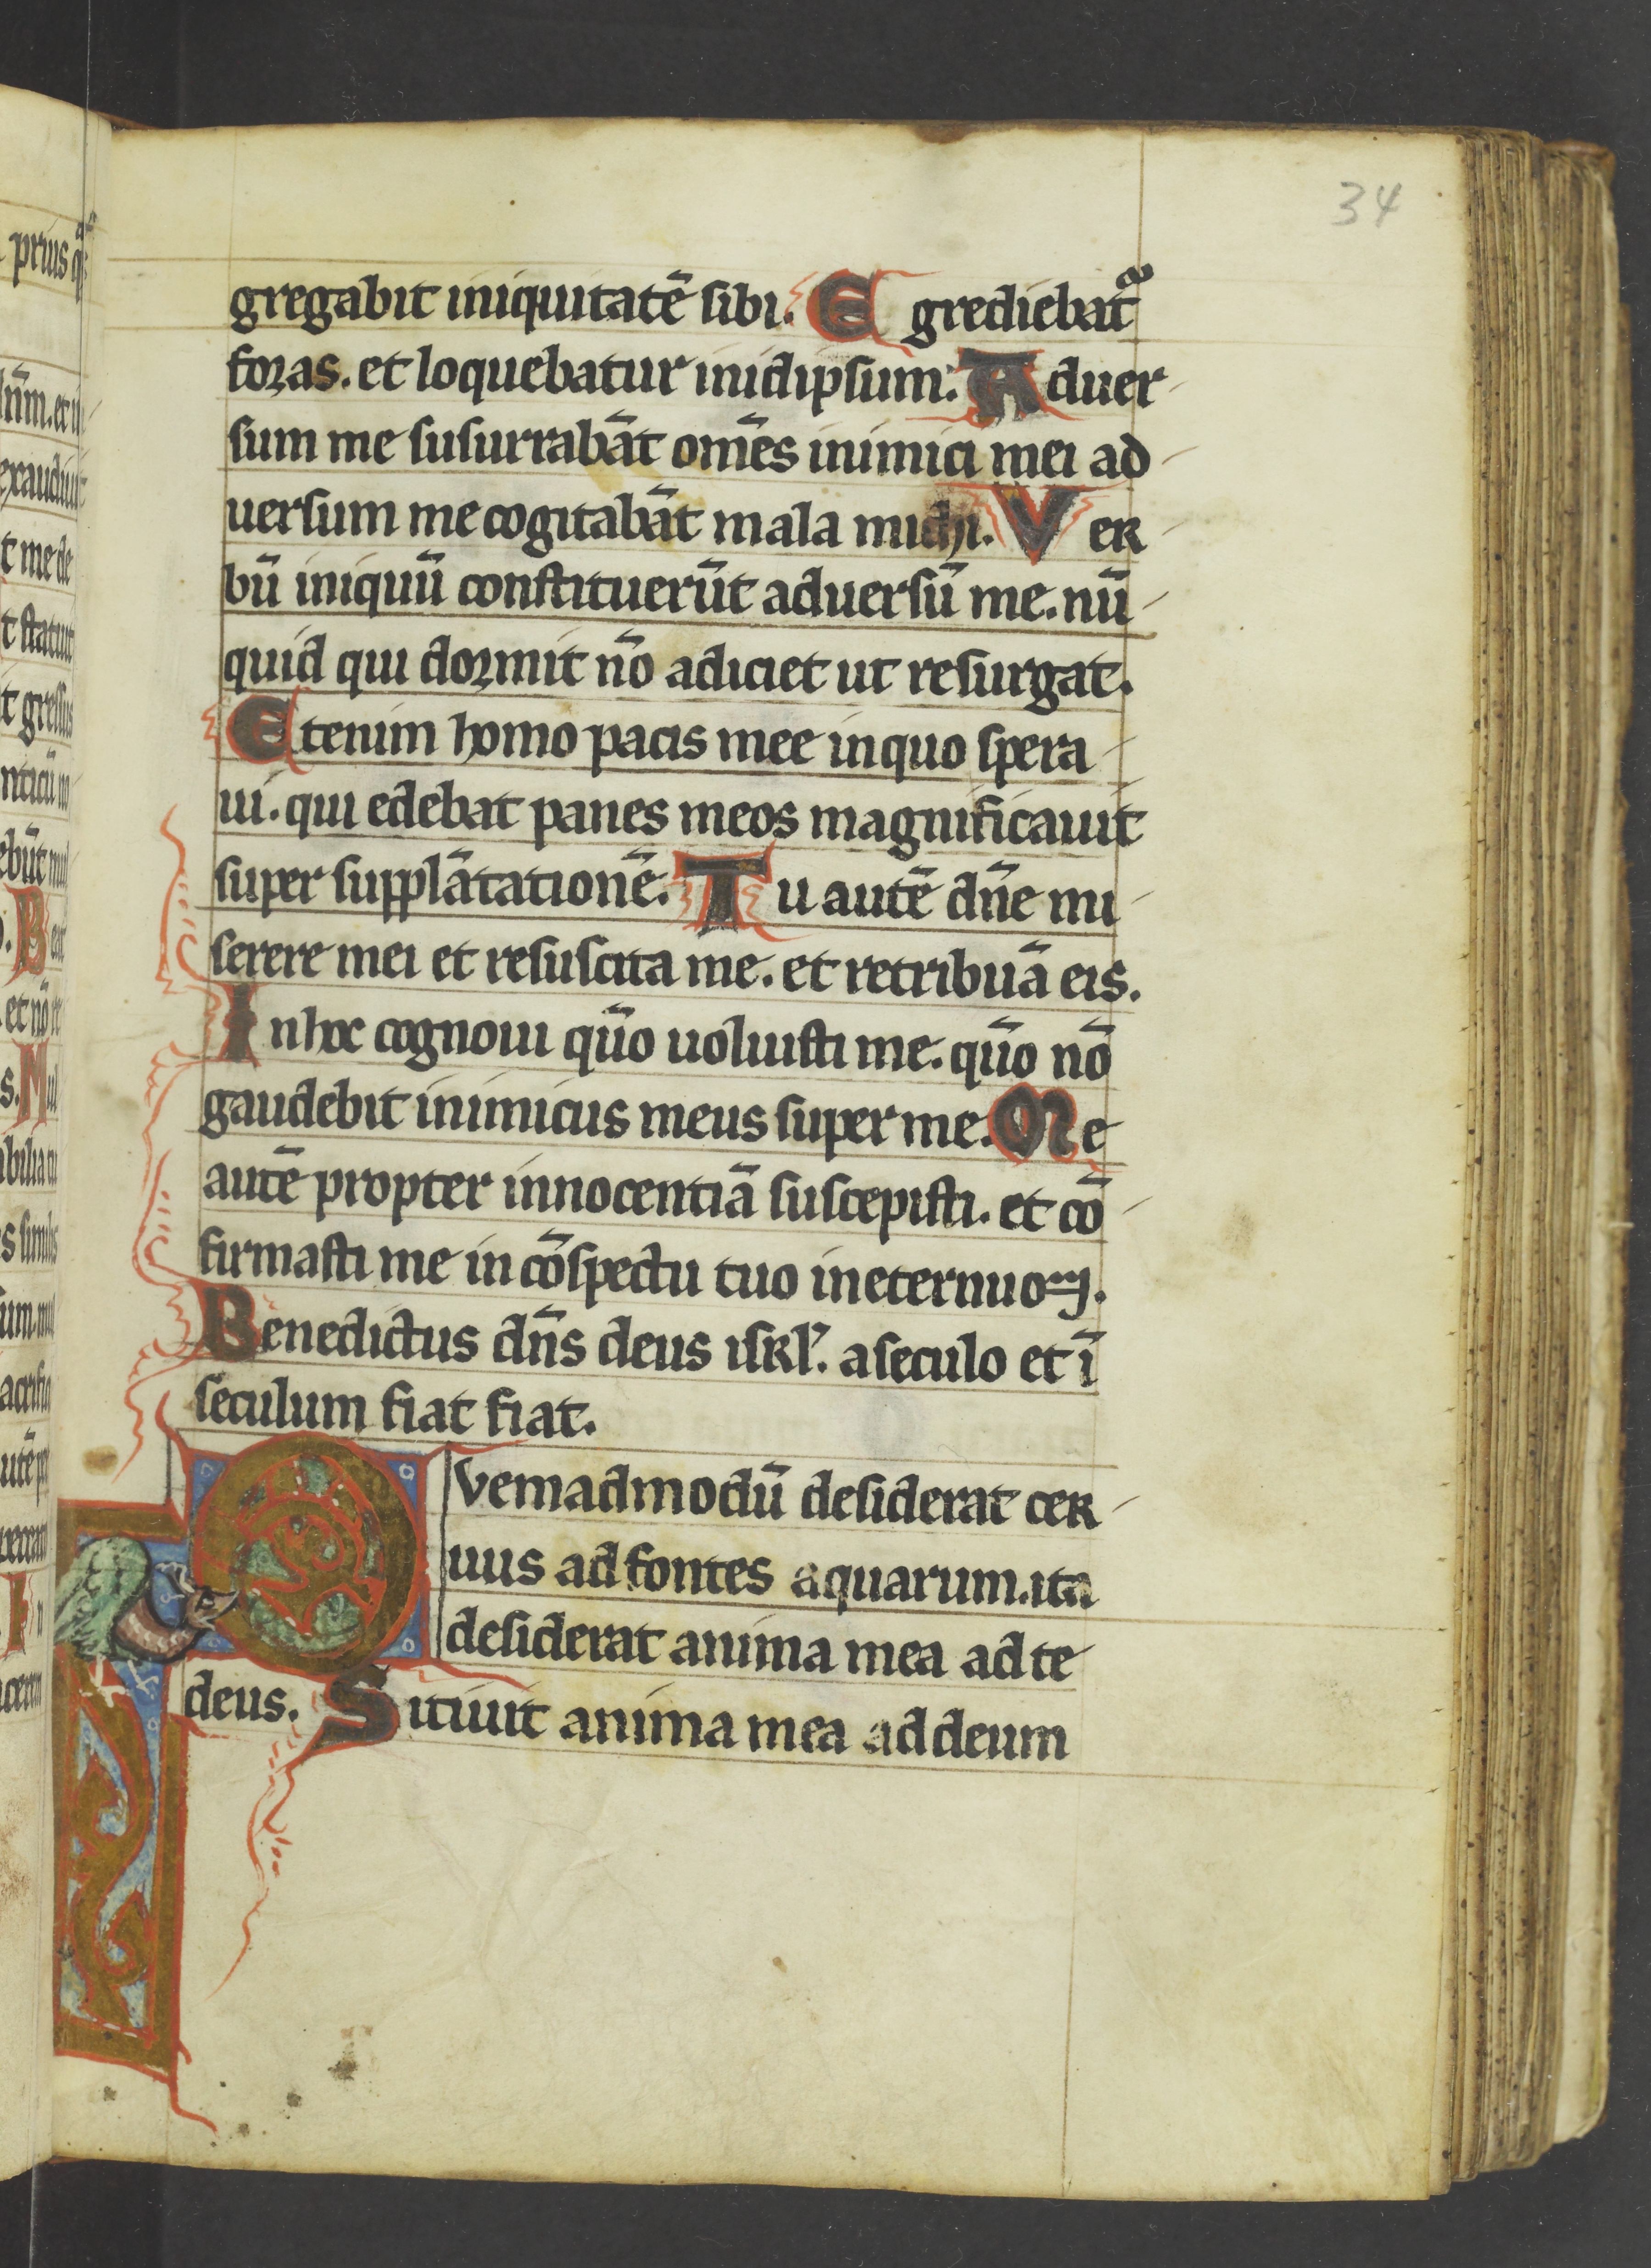 34
gregabit iniquitatē sibi. Egrediebat᷑
foras. et loquebatur inidipsum. Aduer
sum me susurrabāt om̄es inimici mei ad
uersum me cogitabāt mala michi. Ver
bū iniquū constituerūt aduersū me. nū
quid qui dormit nō adiciet ut resurgat.
Etenim homo pacis mee inquo spera
ui. qui edebat panes meos magnificauit
super supplātationē. Tu autē dn̄e mi
serere mei et resuscita me. et retribuā eis.
Inhoc cognoui qūo uoluisti me. qūo nō
gaudebit inimicus meus super me. Me
autē propter innocentiā suscepisti. et cō
firmasti me in cōspectu tuo ineternuom.
Benedictus dn̄s deus isrl'. aseculo et ī
seculum fiat fiat.
Qvemadmodū desiderat cer
uus ad fontes aquarum. ita
desiderat anima mea ad te
deus. Sitiuit anima mea ad deum
prius
exaudiuit
t me de
t statuit
t gressus